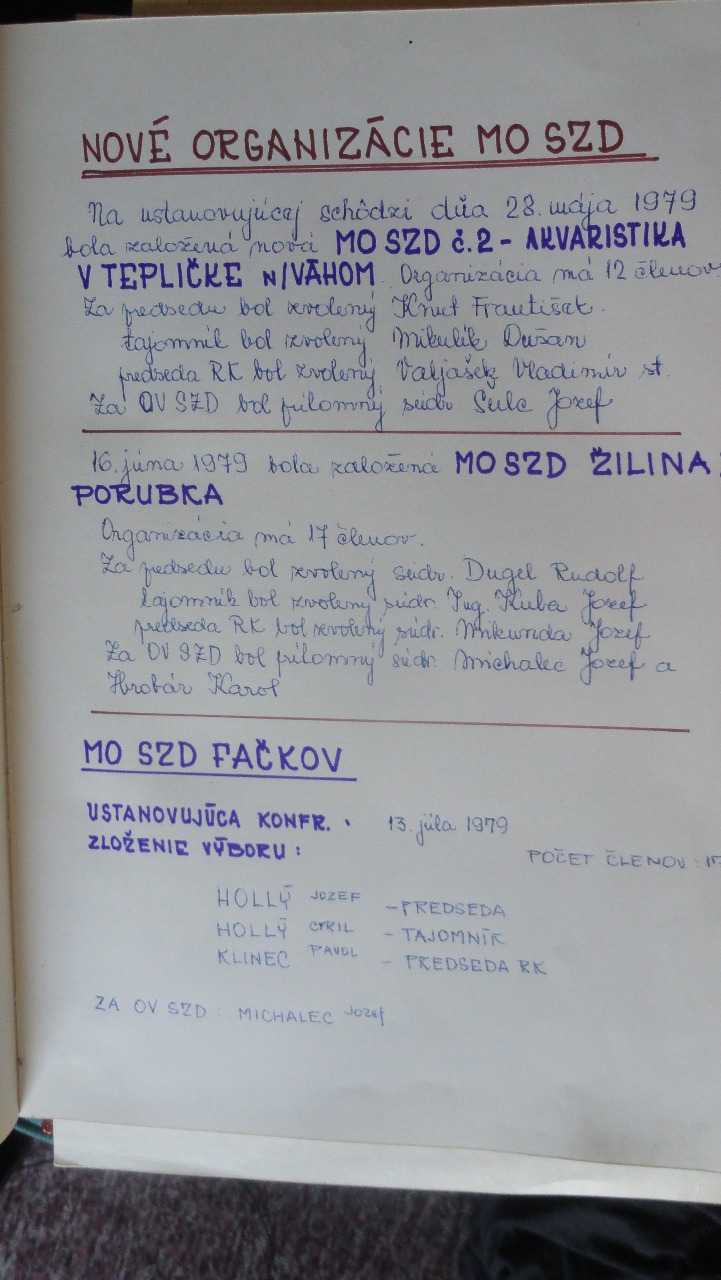 NOVÉ ORGANIZÁCIE MO SZD
Na ustanovujúcej schôdzi dňa 23. mája 1979
bola založená nová MO SZD č.2 - AKVARISTIKA
V TEPLIČKE n/VÁHOM. Organizácia má 12 členov.
Za predsedu bol zvolený Knut František.
tajomník bol zvolený Mikulík Dušan
predseda RK bol zvolený Valjašek Vladimír st.
Za OV SZD bol prítomný súdr. Šulc Jozef
16. júna 1979 bola založená MO SZD ŽILINA
PORUBKA
Organizácia má 17 členov.
Za predsedu bol zvolený súdr. Dugel Rudolf
tajomník bol zvolený súdr. Ing. Kuba Jozef
predseda RK bol zvolený súdr. Mikunda Jozef
Za OV SZD bol prítomný súdr. Michalec Jozef a
Hrobár Karol
MO SZD FAČKOV
USTANOVUJÚCA KONFR. . 13. júla 1979
ZLOŽENIE VÝBORU :
POČET ČLENOV :
HOLLÝ JOZEF - PREDSEDA
HOLLÝ CYRIL - TAJOMNÍK
KLINEC PAVOL - PREDSEDA RK
ZA OV SZD : MICHALEC Jozef